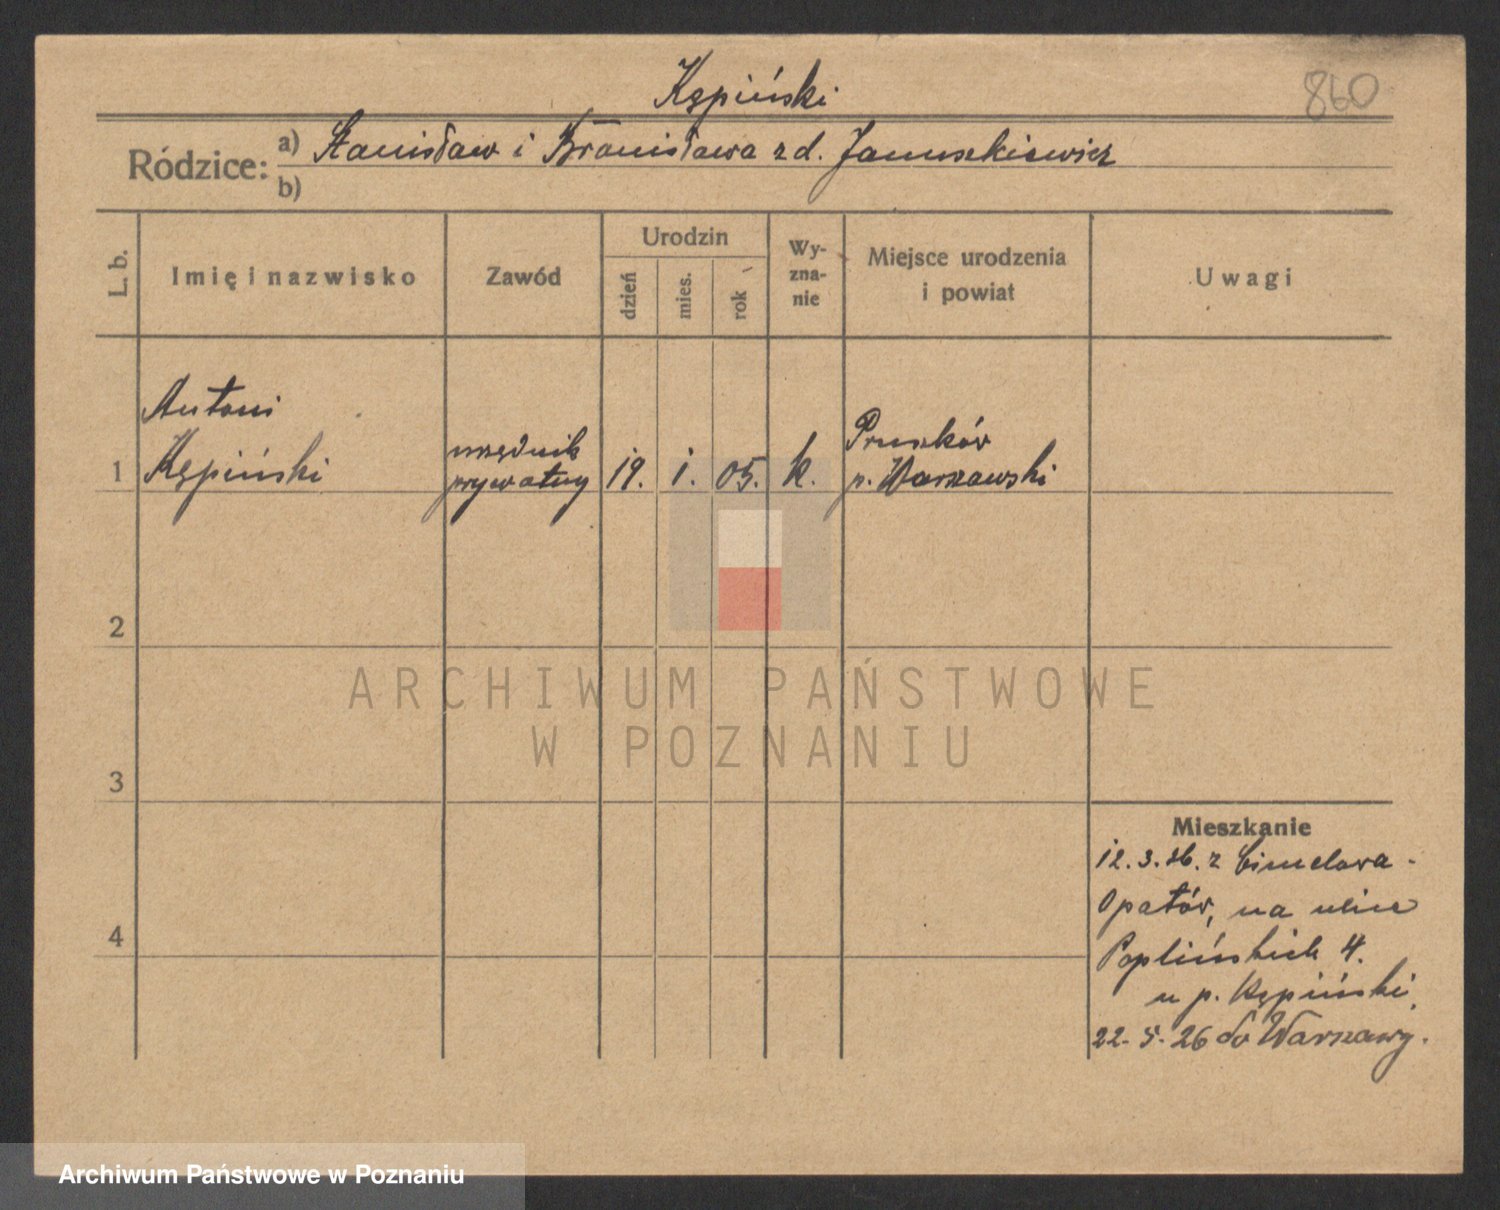 Kępiński
860
Ródzice: a) Stanisław i Bronisława zd. Januszkiewicz
b)
L. b.
Imię i nazwisko
Zawód
Urodzin
dzień
mies.
rok
Wy-
zna-
nie
Miejsce urodzenia
i powiat
Uwagi
Antoni
Kępiński
urzędnik
prywatny
19. 1. 05. k.
Pruszków
p. Warszawski
1
2
3
4
ARCHIWUM PAŃSTWOWE
W POZNANIU
Mieszkanie
12.3.26. z Ćmielowa -
Opatów, na ulice
Poplińskich 4.
u p. Kępiński.
22. 5. 26 do Warszawy.
Archiwum Państwowe w Poznaniu